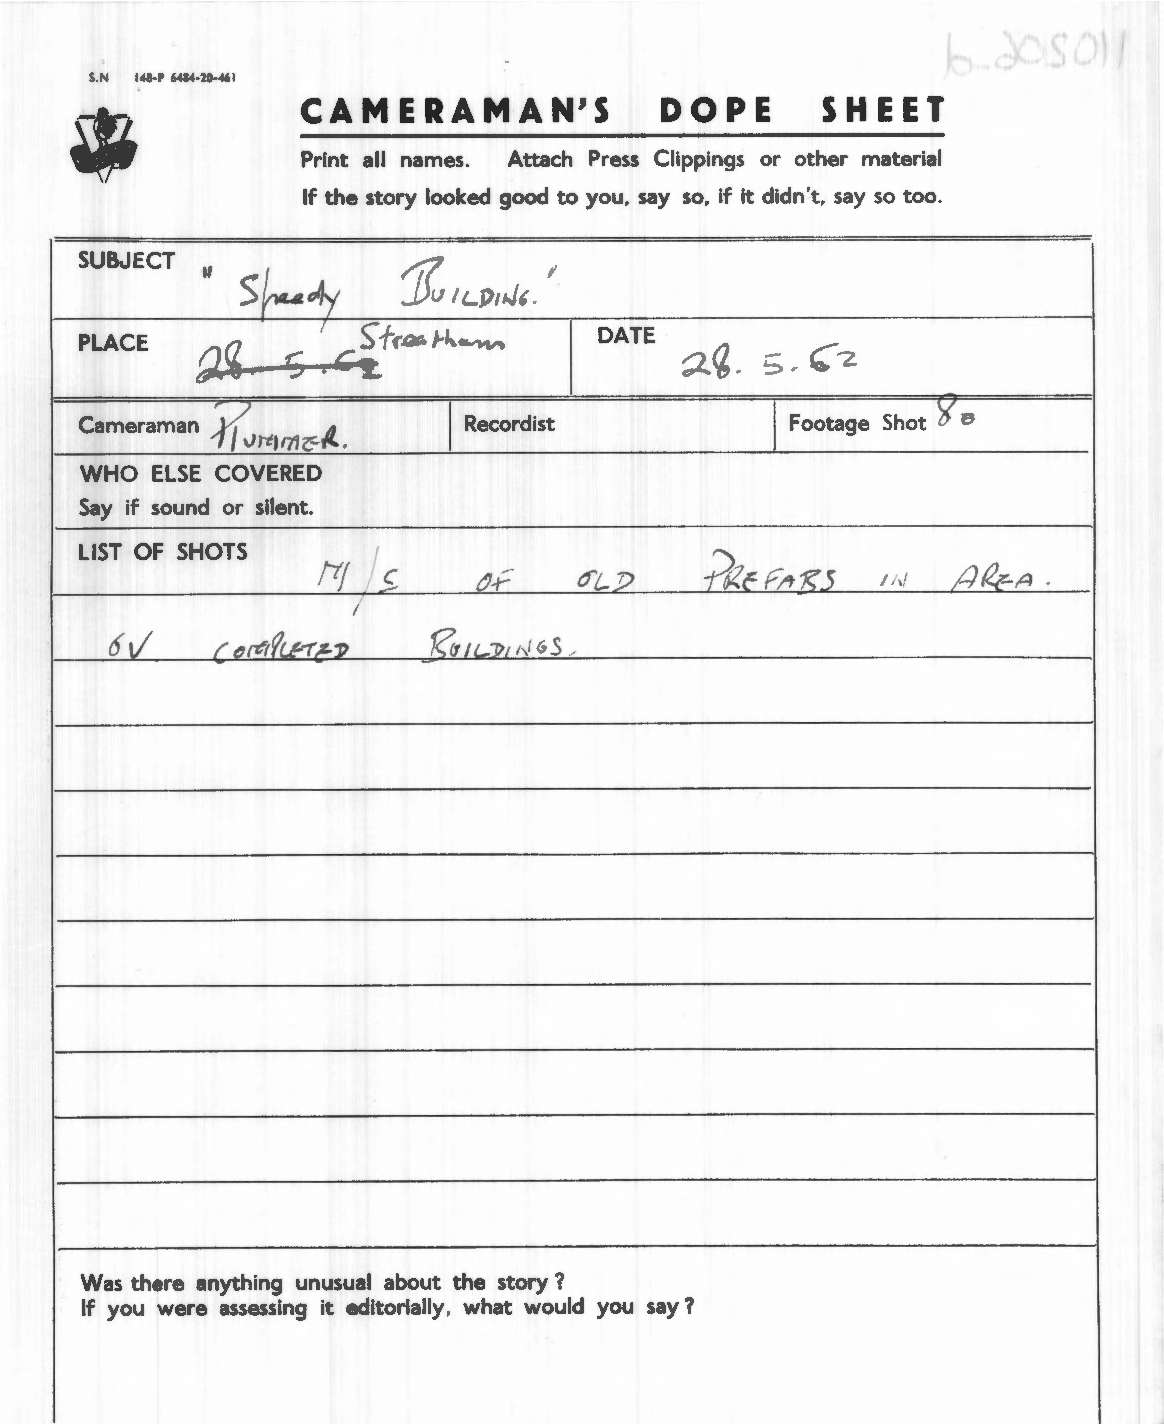 b-205011
S.N 148-P 6484-20-461
CAMERAMAN'S DOPE SHEET
Print all names. Attach Press Clippings or other material
If the story looked good to you, say so, if it didn't, say so too.
SUBJECT "Speedy BUILDING."
PLACE 28.5.62 Streatham DATE 28.5.62
Cameraman PLUMMER. Recordist Footage Shot 80
WHO ELSE COVERED
Say if sound or silent.
LIST OF SHOTS M/S OF OLD PREFABS IN AREA.
GV COMPLETED BUILDINGS.
Was there anything unusual about the story?
If you were assessing it editorially, what would you say?